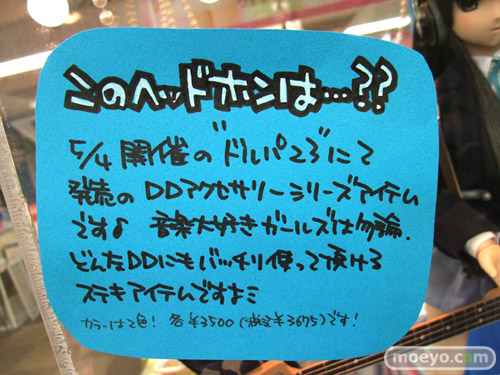 このヘッドホンは…??
5/4 開催の "ドルパ23"にて
発売のDDアクセサリーシリーズアイテム
です♪ 音楽大好きガールズは勿論、
どんなDDにもバッチリ使って頂ける
ステキアイテムですよミ
カラーは2色! 各¥3500(税込¥3675)です!
moeyo.com